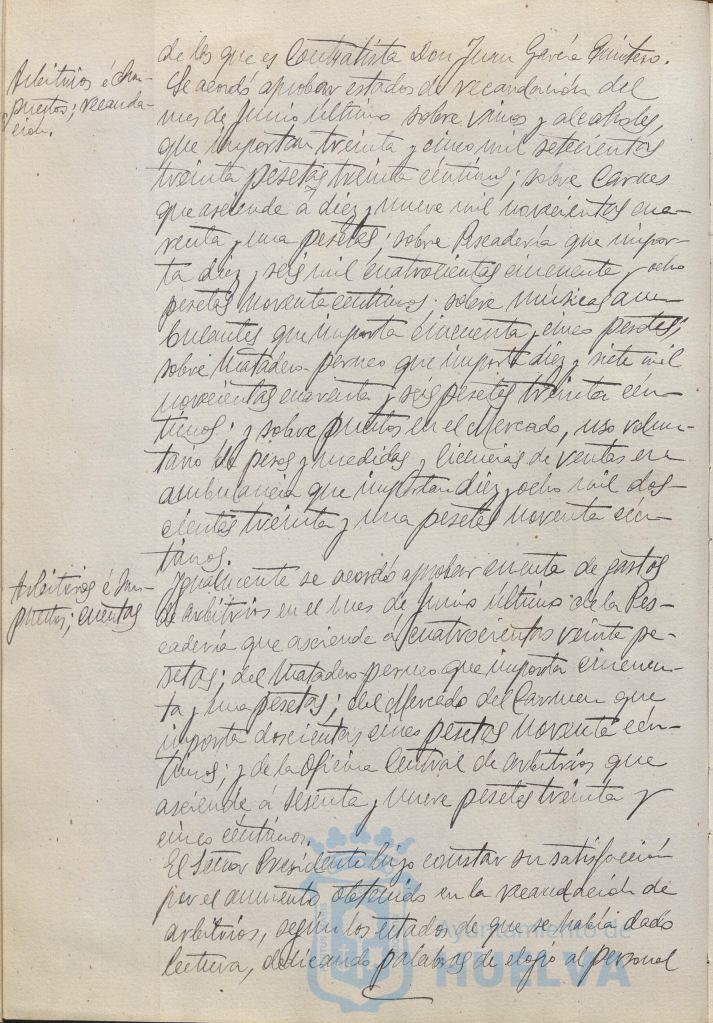 de los que es Contratista Don Juan García Quintero.
Arbitrios é Im-
puestos; recauda-
ción.
Se acordó aprobar estados de recaudación del
mes de Junio último sobre vinos y alcoholes,
que importan treinta y cinco mil setecientos
treinta pesetas treinta céntimos; sobre Carnes
que asciende á diez y nueve mil novecientos cua-
renta y una pesetas; sobre Pescadería que impor-
ta diez y seis mil cuatrocientas cincuenta y ocho
pesetas noventa céntimos; sobre músicas am-
bulantes que importa cincuenta y cinco pesetas;
sobre Matadero porcuno que importa diez y siete mil
novecientas cuarenta y seis pesetas treinta cén-
timos; y sobre puestos en el Mercado, uso volun-
tario de pesas y medidas y licencias de ventas en
ambulancia que importan diez y ocho mil dos-
cientas treinta y una pesetas noventa cén-
timos.
Arbitrios é Im-
puestos; cuentas
Igualmente se acordó aprobar cuenta de gastos
de arbitrios en el mes de Junio último: de la Pes-
cadería que asciende á cuatrocientos veinte pe-
setas; del Matadero porcuno que importa cincuen-
ta y una pesetas; del Mercado del Carmen que
importa doscientas cinco pesetas noventa cén-
timos; y de la Oficina Central de arbitrios que
asciende á sesenta y nueve pesetas treinta y
cinco céntimos.
El Señor Presidente hizo constar su satisfacción
por el aumento obtenido en la recaudación de
arbitrios, según los estados de que se había dado
lectura, dedicando palabras de elogio al personal
Ayuntamiento de
HUELVA